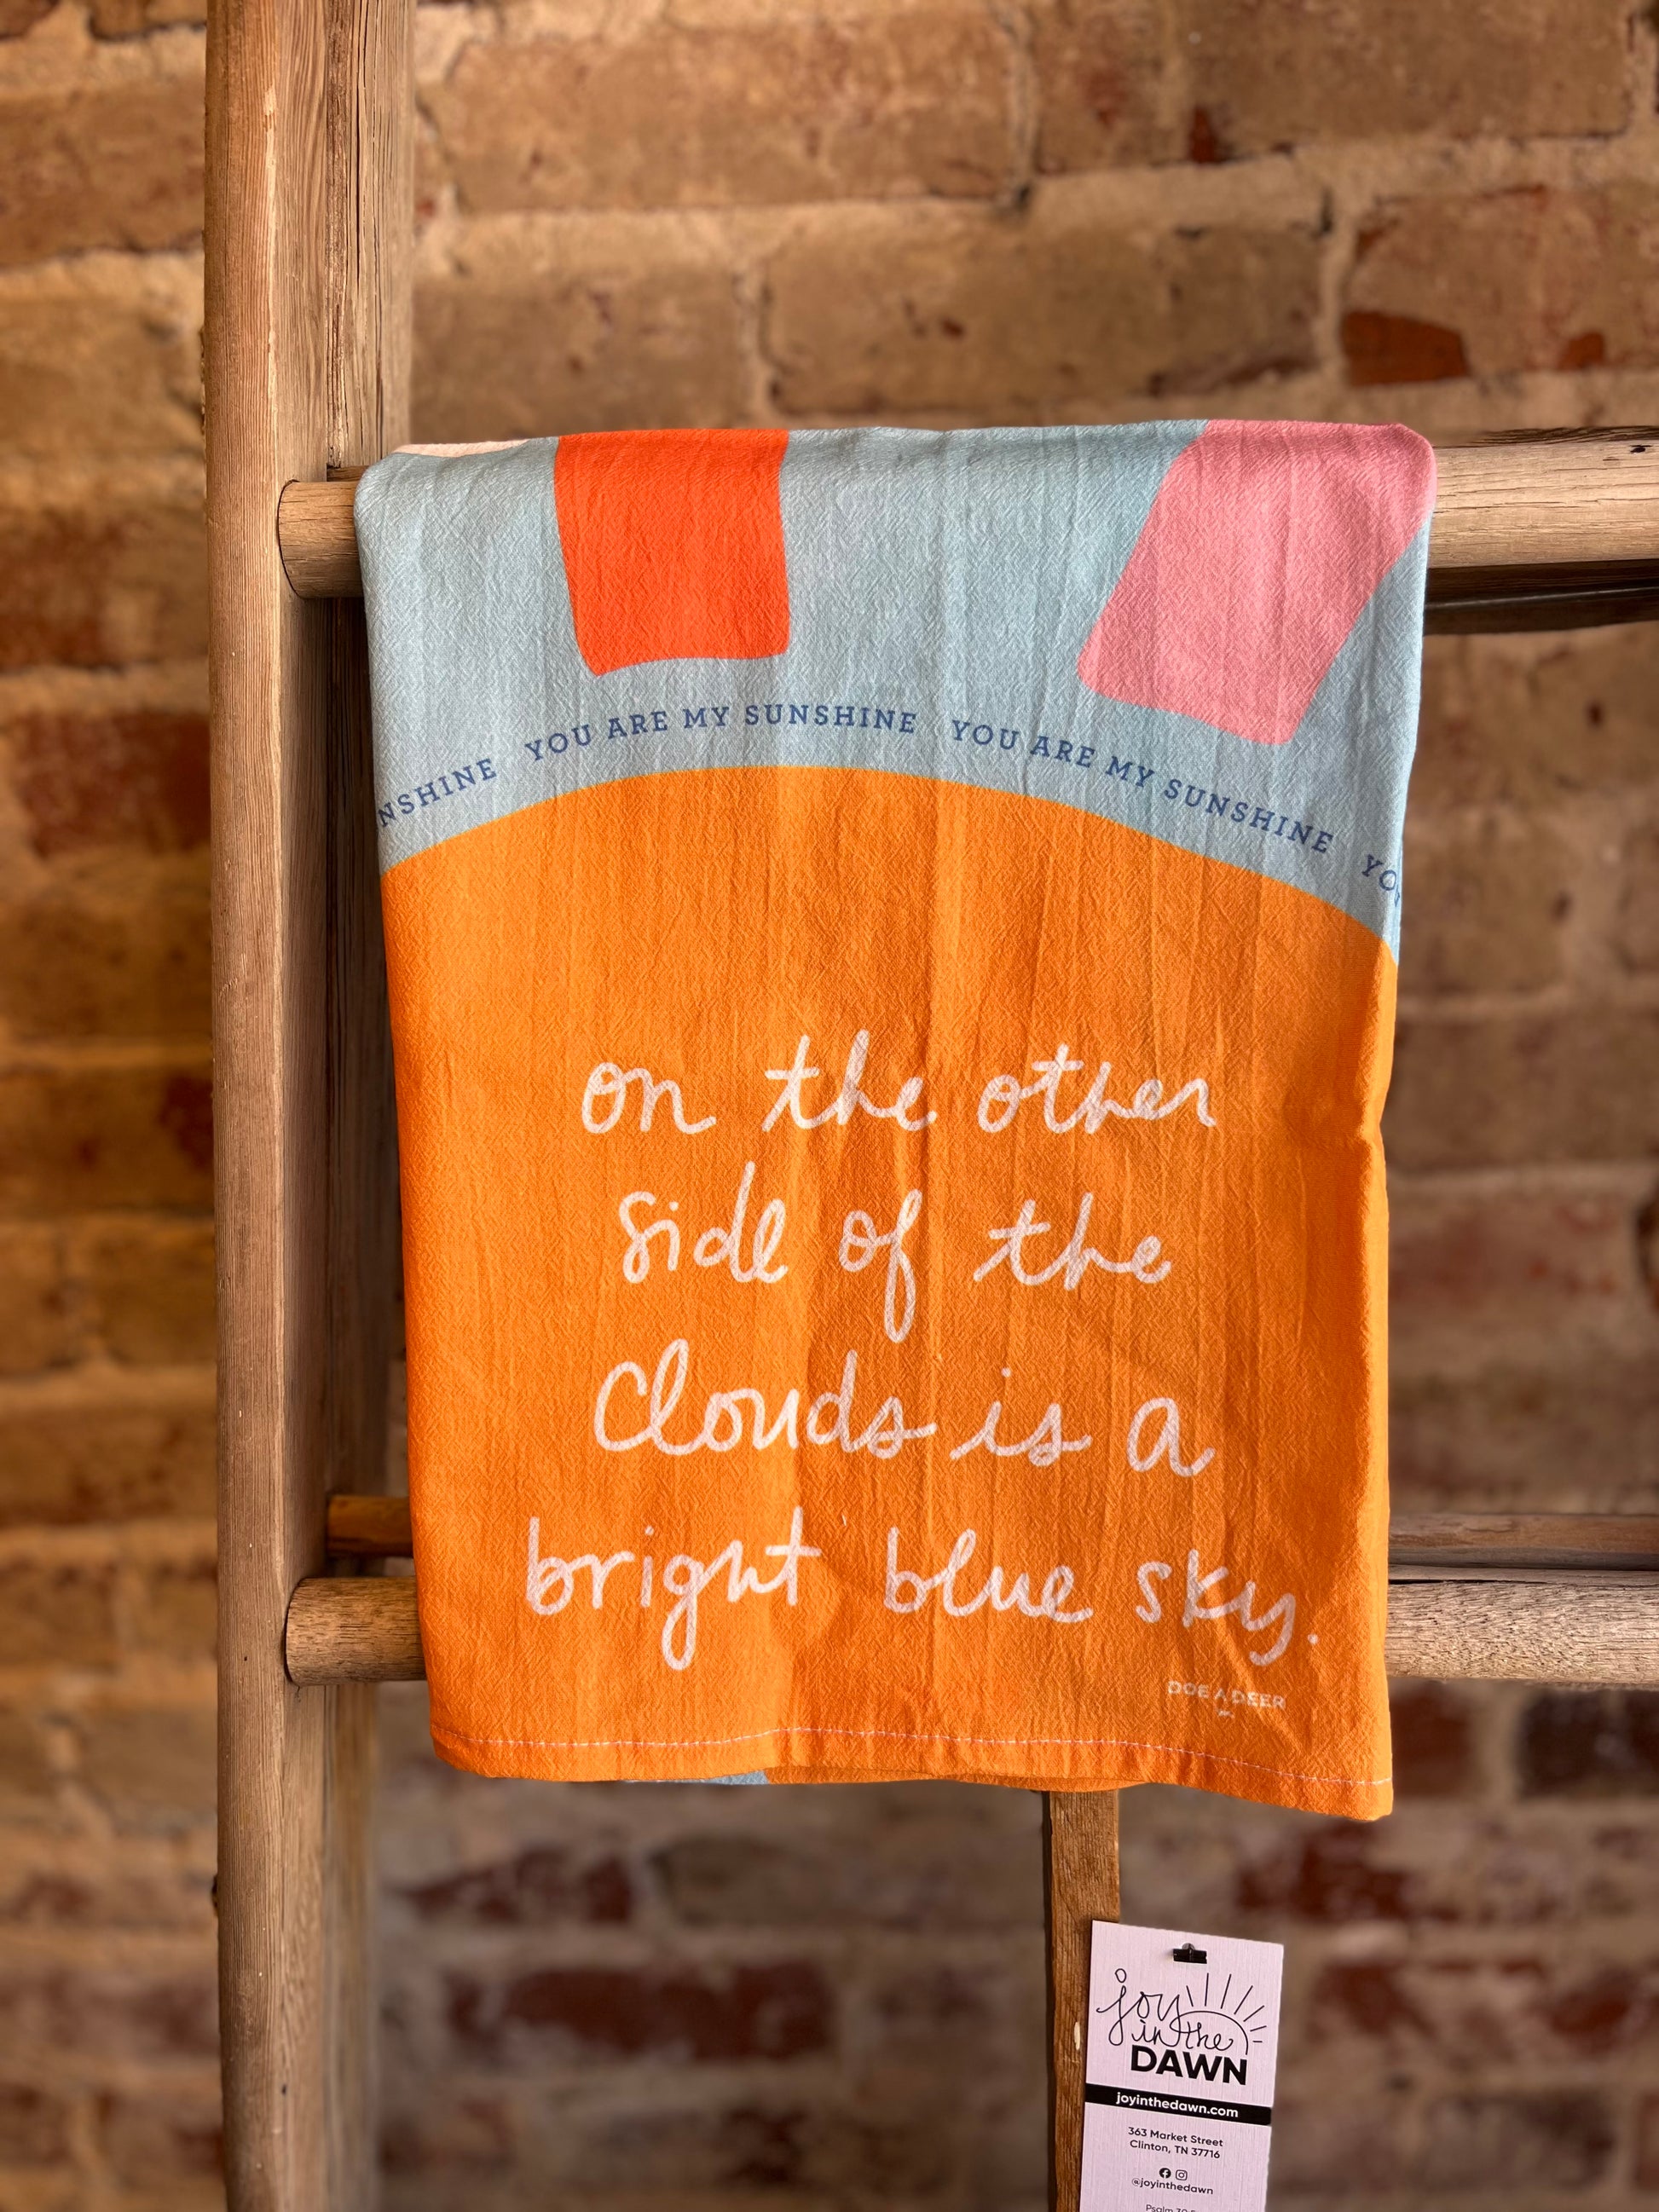 NSHINE YOU ARE MY SUNSHINE YOU ARE MY SUNSHINE YOU
on the other
side of the
Clouds is a
bright blue sky.
DOE A DEER
joy
in the
DAWN
joyinthedawn.com
363 Market Street
Clinton, TN 37716
@joyinthedawn
Psalm